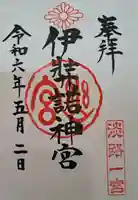 奉拝
伊弉諾神宮
淡路一宮
令和六年五月二日